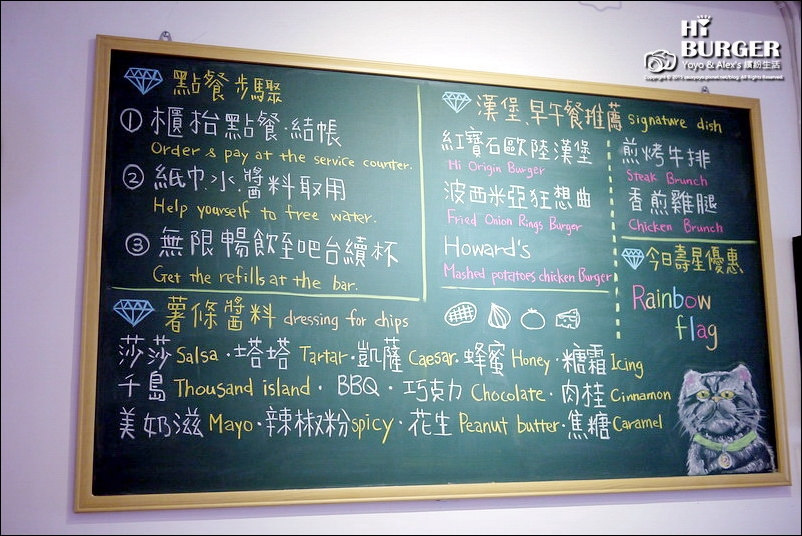 Hi
BURGER
Yoyo & Alex's 繽紛生活
點餐步驟
① 櫃抬點餐·結帳
Order & pay at the service counter.
② 紙巾、水、醬料取用
Help yourself to free water.
③ 無限暢飲至吧台續杯
Get the refills at the bar.
漢堡、早午餐推薦 signature dish
紅寶石歐陸漢堡
Hi Origin Burger
波西米亞狂想曲
Fried Onion Rings Burger
Howard's
Mashed potatoes chicken Burger
煎烤牛排
Steak Brunch
香煎雞腿
Chicken Brunch
今日壽星優惠
Rainbow
flag
薯條醬料 dressing for chips
莎莎 Salsa · 塔塔 Tartar · 凱薩 Caesar · 蜂蜜 Honey · 糖霜 Icing
千島 Thousand island · BBQ · 巧克力 Chocolate · 肉桂 Cinnamon
美奶滋 Mayo · 辣椒粉 spicy · 花生 Peanut butter · 焦糖 Caramel